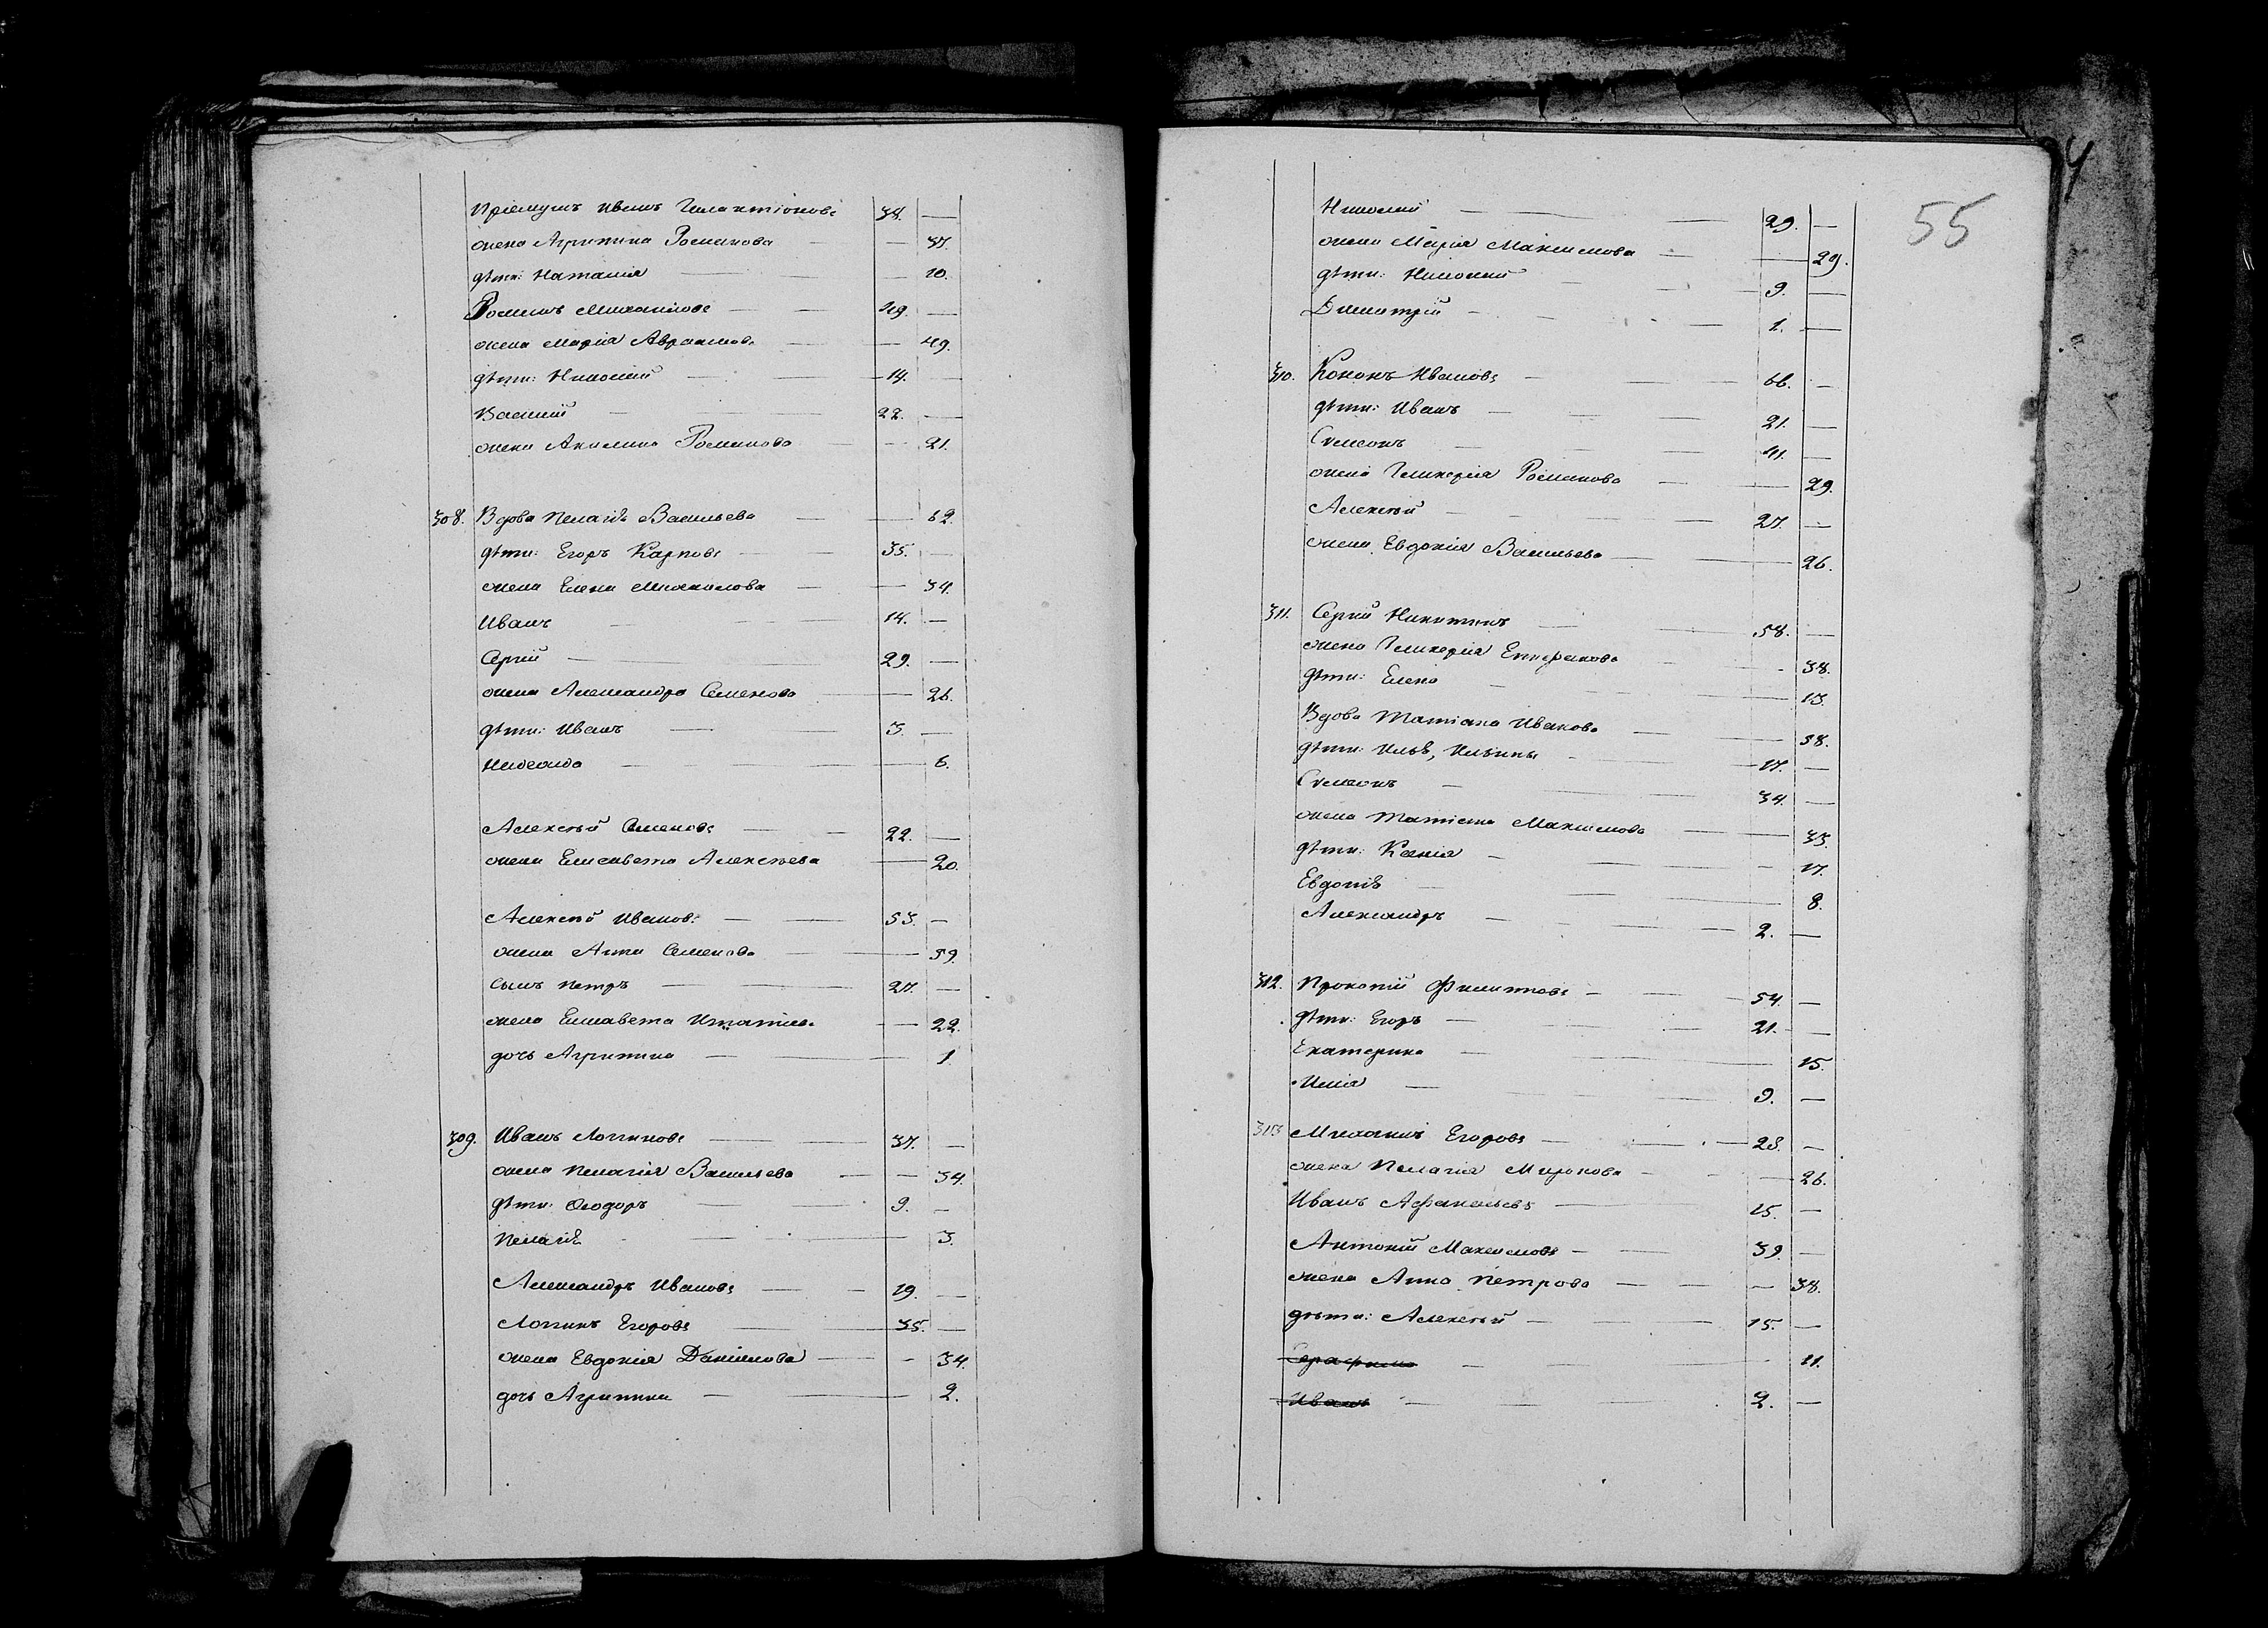 Пріемышъ Иванъ Галактіоновъ 38. —
жена Агрипина Романова — 37.
дѣти: Наталія — 10.
Романъ Михаиловъ 49. —
жена Марія Авраамова — 49.
дѣти: Николай 14. —
Василій 22. —
жена Акилина Романова — 21.
308. Вдова Пелагія Васильева — 62.
дѣти: Егоръ Карповъ 35. —
жена Елена Михаилова — 34.
Иванъ 14. —
Сергій 29. —
жена Александра Семенова — 26.
дѣти: Иванъ 3. —
— 6.
Алексѣй Семеновъ 22. —
жена Елисавета Алексѣева — 20.
Алексѣй Ивановъ 53. —
жена Анна Семенова — 59.
сынъ Петръ 27. —
жена Елисавета Игнатіева — 22.
дочь Агрипина — 1.
309. Иванъ Логгиновъ 37. —
жена Пелагія Васильева — 34.
дѣти: Ѳеодоръ 9. —
Пелагія — 3.
Александръ Ивановъ 19. —
Логгинъ Егоровъ 35. —
жена Евдокія Даніилова — 34.
дочь Агрипина — 2.
55
Николай 29. —
жена Марія Максимова — 29.
дѣти: Николай 9. —
Димитрій 1. —
310. Кононъ Ивановъ 66. —
дѣти: Иванъ 21. —
Сѵмеонъ 41. —
жена Гликерія Романова — 29.
Алексѣй 27. —
жена Евдокія Васильева — 26.
311. Сергій Никитинъ 58. —
жена Гликерія — 38.
дѣти: Елена — 13.
Вдова Татіана Иванова — 58.
дѣти: Илья, Ильины 17. —
Сѵмеонъ 34. —
жена Татіана Максимова — 33.
дѣти: Ксенія — 17.
Евдокія — 8.
Александръ 2. —
312. Прокопій Филипповъ 54. —
дѣти: Егоръ 21. —
Екатерина — 15.
Илія 9. —
313 Михаилъ Егоровъ 28. —
жена Пелагія Миронова — 26.
Иванъ Афанасьевъ 15. —
Антоній Максимовъ 39. —
жена Анна Петрова — 38.
дѣти: Алексѣй 15. —
Серафима — 11.
Иванъ 2. —